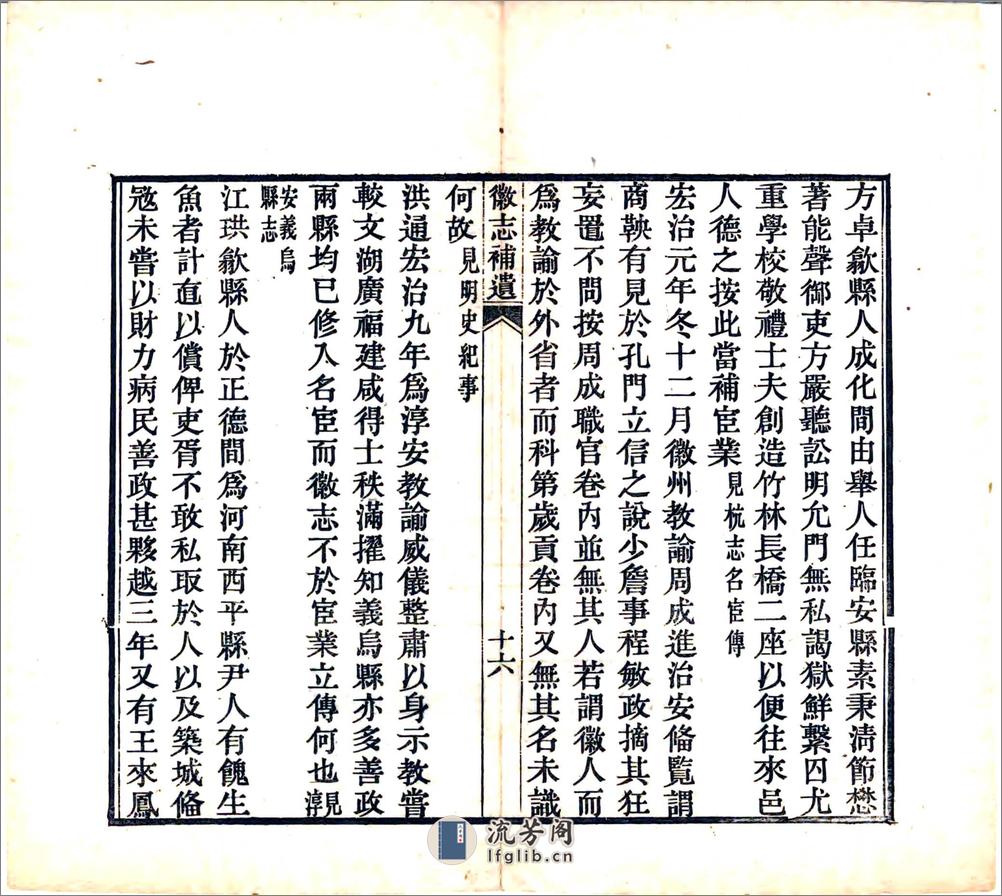 方卓歙縣人成化間由舉人任臨安縣素秉淸節懋
著能聲御吏方嚴聽訟明允門無私謁獄鮮繫囚尤
重學校敬禮士夫創造竹林長橋二座以便往來邑
人德之按此當補宦業見杭志名宦傳
宏治元年冬十二月徽州教諭周成進治安備覽謂
商鞅有見於孔門立信之說少詹事程敏政摘其狂
妄置不問按周成職官卷內並無其人若謂徽人而
爲教諭於外省者而科第歲貢卷內又無其名未識
徽志補遺
十六
何故見明史紀事
洪通宏治九年爲淳安教諭威儀整肅以身示教嘗
較文湖廣福建咸得士秩滿擢知義烏縣亦多善政
兩縣均已修入名宦而徽志不於宦業立傳何也見淳
安義烏
縣志
江珙歙縣人於正德間爲河南西平縣尹人有餽生
魚者計直以償俾吏胥不敢私取於人以及築城備
寇未嘗以財力病民善政甚夥越三年又有王來鳳
流芳阁
lfglib.cn